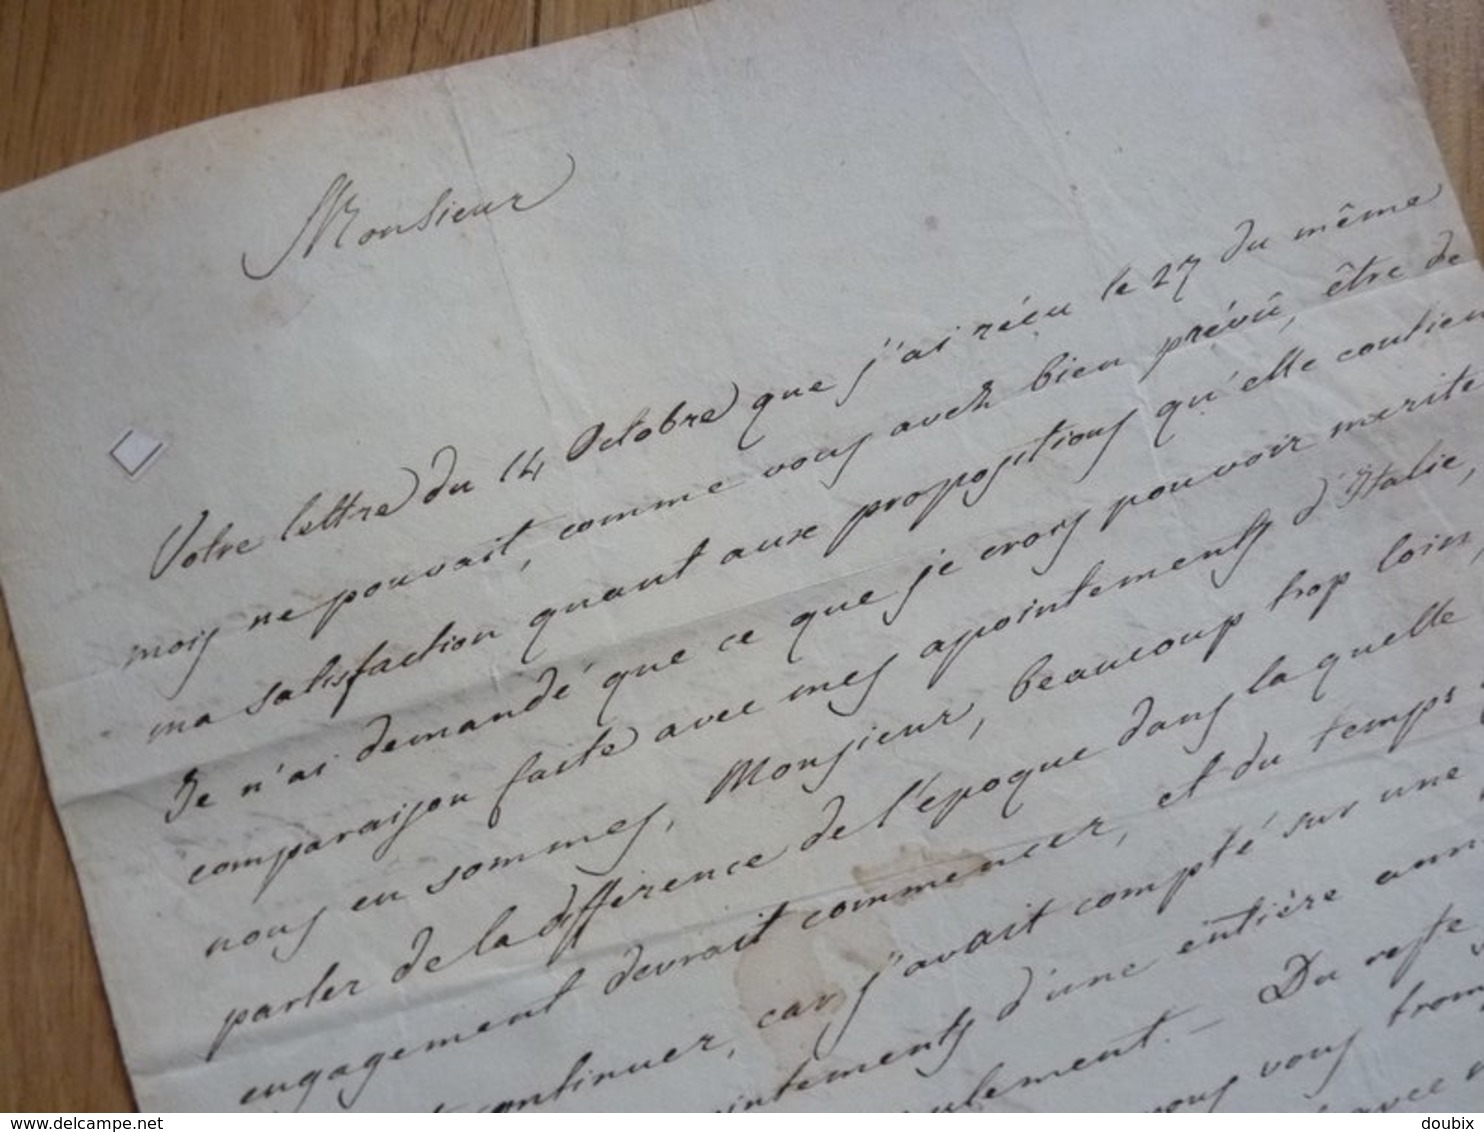 Monsieur
Votre lettre du 14 Octobre que j'ai récu le 27 du même
mois ne pouvait, comme vous avez bien prévû, être de
ma satisfaction quant aux propositions qu'elle contien
Je n'ai demandé que ce que je crois pouvoir merite
comparaison faite avec mes apointements d'Italie,
nous en sommes, Monsieur, beaucoup trop loin,
parler de la difference de l'époque dans laquelle
engagement devrait commencer, et du temps
continuer, car j'avait compté sur une
intements d'une entière ann
ulement. — Du reste
vous vous trom
avec
www.delcampe.net
doubix